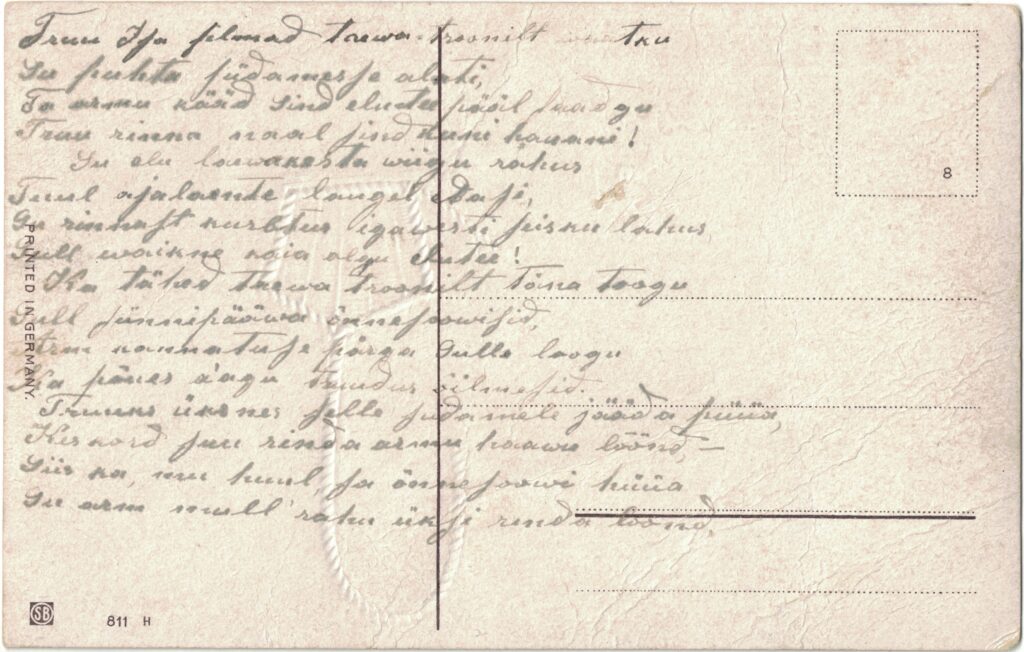 Truu Isa silmad taewa-troonilt waatku
Su puhta südamesse alati,
Ta armu kääd sind elutee pääl saadgu
Truu rinna naal sind kuni hauani!
Su elu laewakesta wiigu rahus
Tuul ajalaente laugel edasi,
Su rinnast kurbtus igawesti sisku lahus
Sull waikne raia olgu elutee!
Ka tähed taewa troonilt täna toogu
Sull sünnipääwa õnnesoowisid,
Arm kannatuse pärga Sulle loogu
Ka põues aagu truudus õilmesid.
Truuks üksnes selle südamele jääda püüa,
Kes kord suu rinda armu haawu löönd, —
Siis ka, mu huul, sa õnnesoowi hüüa
Su arm mull' rahu üksi rinda loond.
PRINTED IN GERMANY.
8
SB
811 H